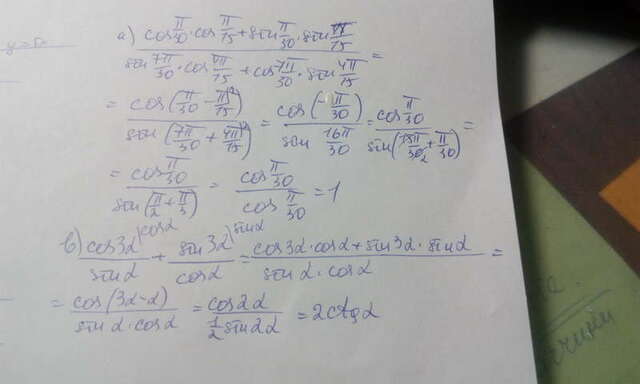 а) (cos π/30 · cos π/75 + sin π/30 · sin π/75) / (sin 7π/30 · cos 4π/75 + cos 7π/30 · sin 4π/75) =
= cos(π/30 - π/75) / sin(7π/30 + 4π/75) = cos(-π/30) / sin 16π/30 = cos π/30 / sin(15π/30 + π/30) =
= cos π/30 / sin(π/2 + π/3) = cos π/30 / cos π/30 = 1
в) cos3α/sinα |cosα + sin3α/cosα |sinα = (cos3α·cosα + sin3α·sinα) / (sinα·cosα) =
= cos(3α-α) / (sinα·cosα) = cos2α / (1/2 sin2α) = 2ctgα